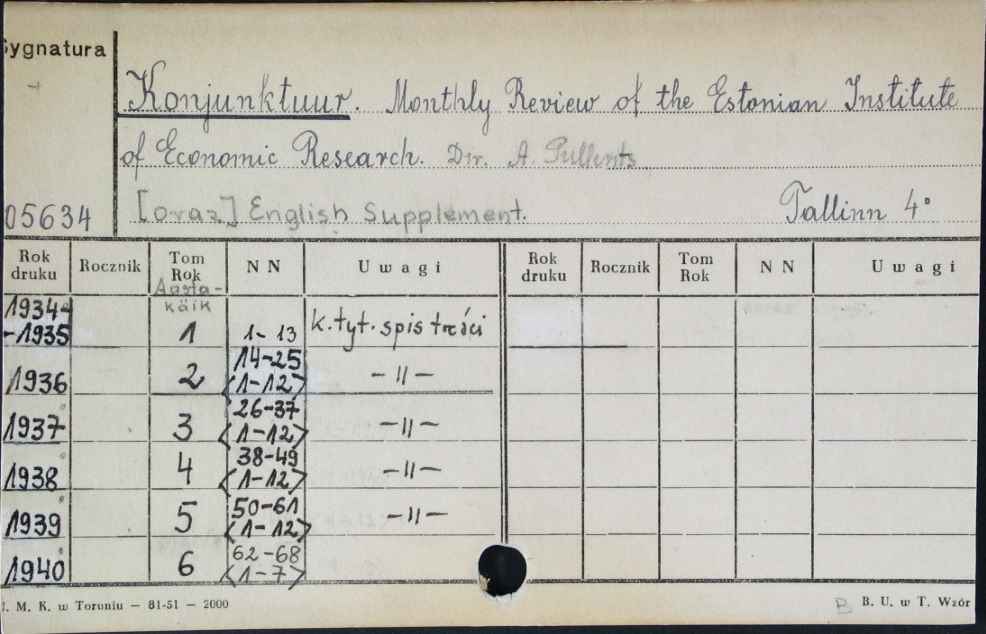 Sygnatura
Konjunktuur. Monthly Review of the Estonian Institute
of Economic Research. Dir. A. Pullerits
05634 [oraz] English Supplement. Tallinn 4°
Rok druku Rocznik Tom Rok N N Uwagi Rok druku Rocznik Tom Rok N N Uwagi
Aasta-
käik
1934-
-1935 1 1-13 k. tyt. spis treści
1936 2 14-25 <1-12> -〃-
1937 3 26-37 <1-12> -〃-
1938 4 38-49 <1-12> -〃-
1939 5 50-61 <1-12> -〃-
1940 6 62-68 <1-7>
I. M. K. w Toruniu — 81-51 — 2000 B B. U. w T. Wzór